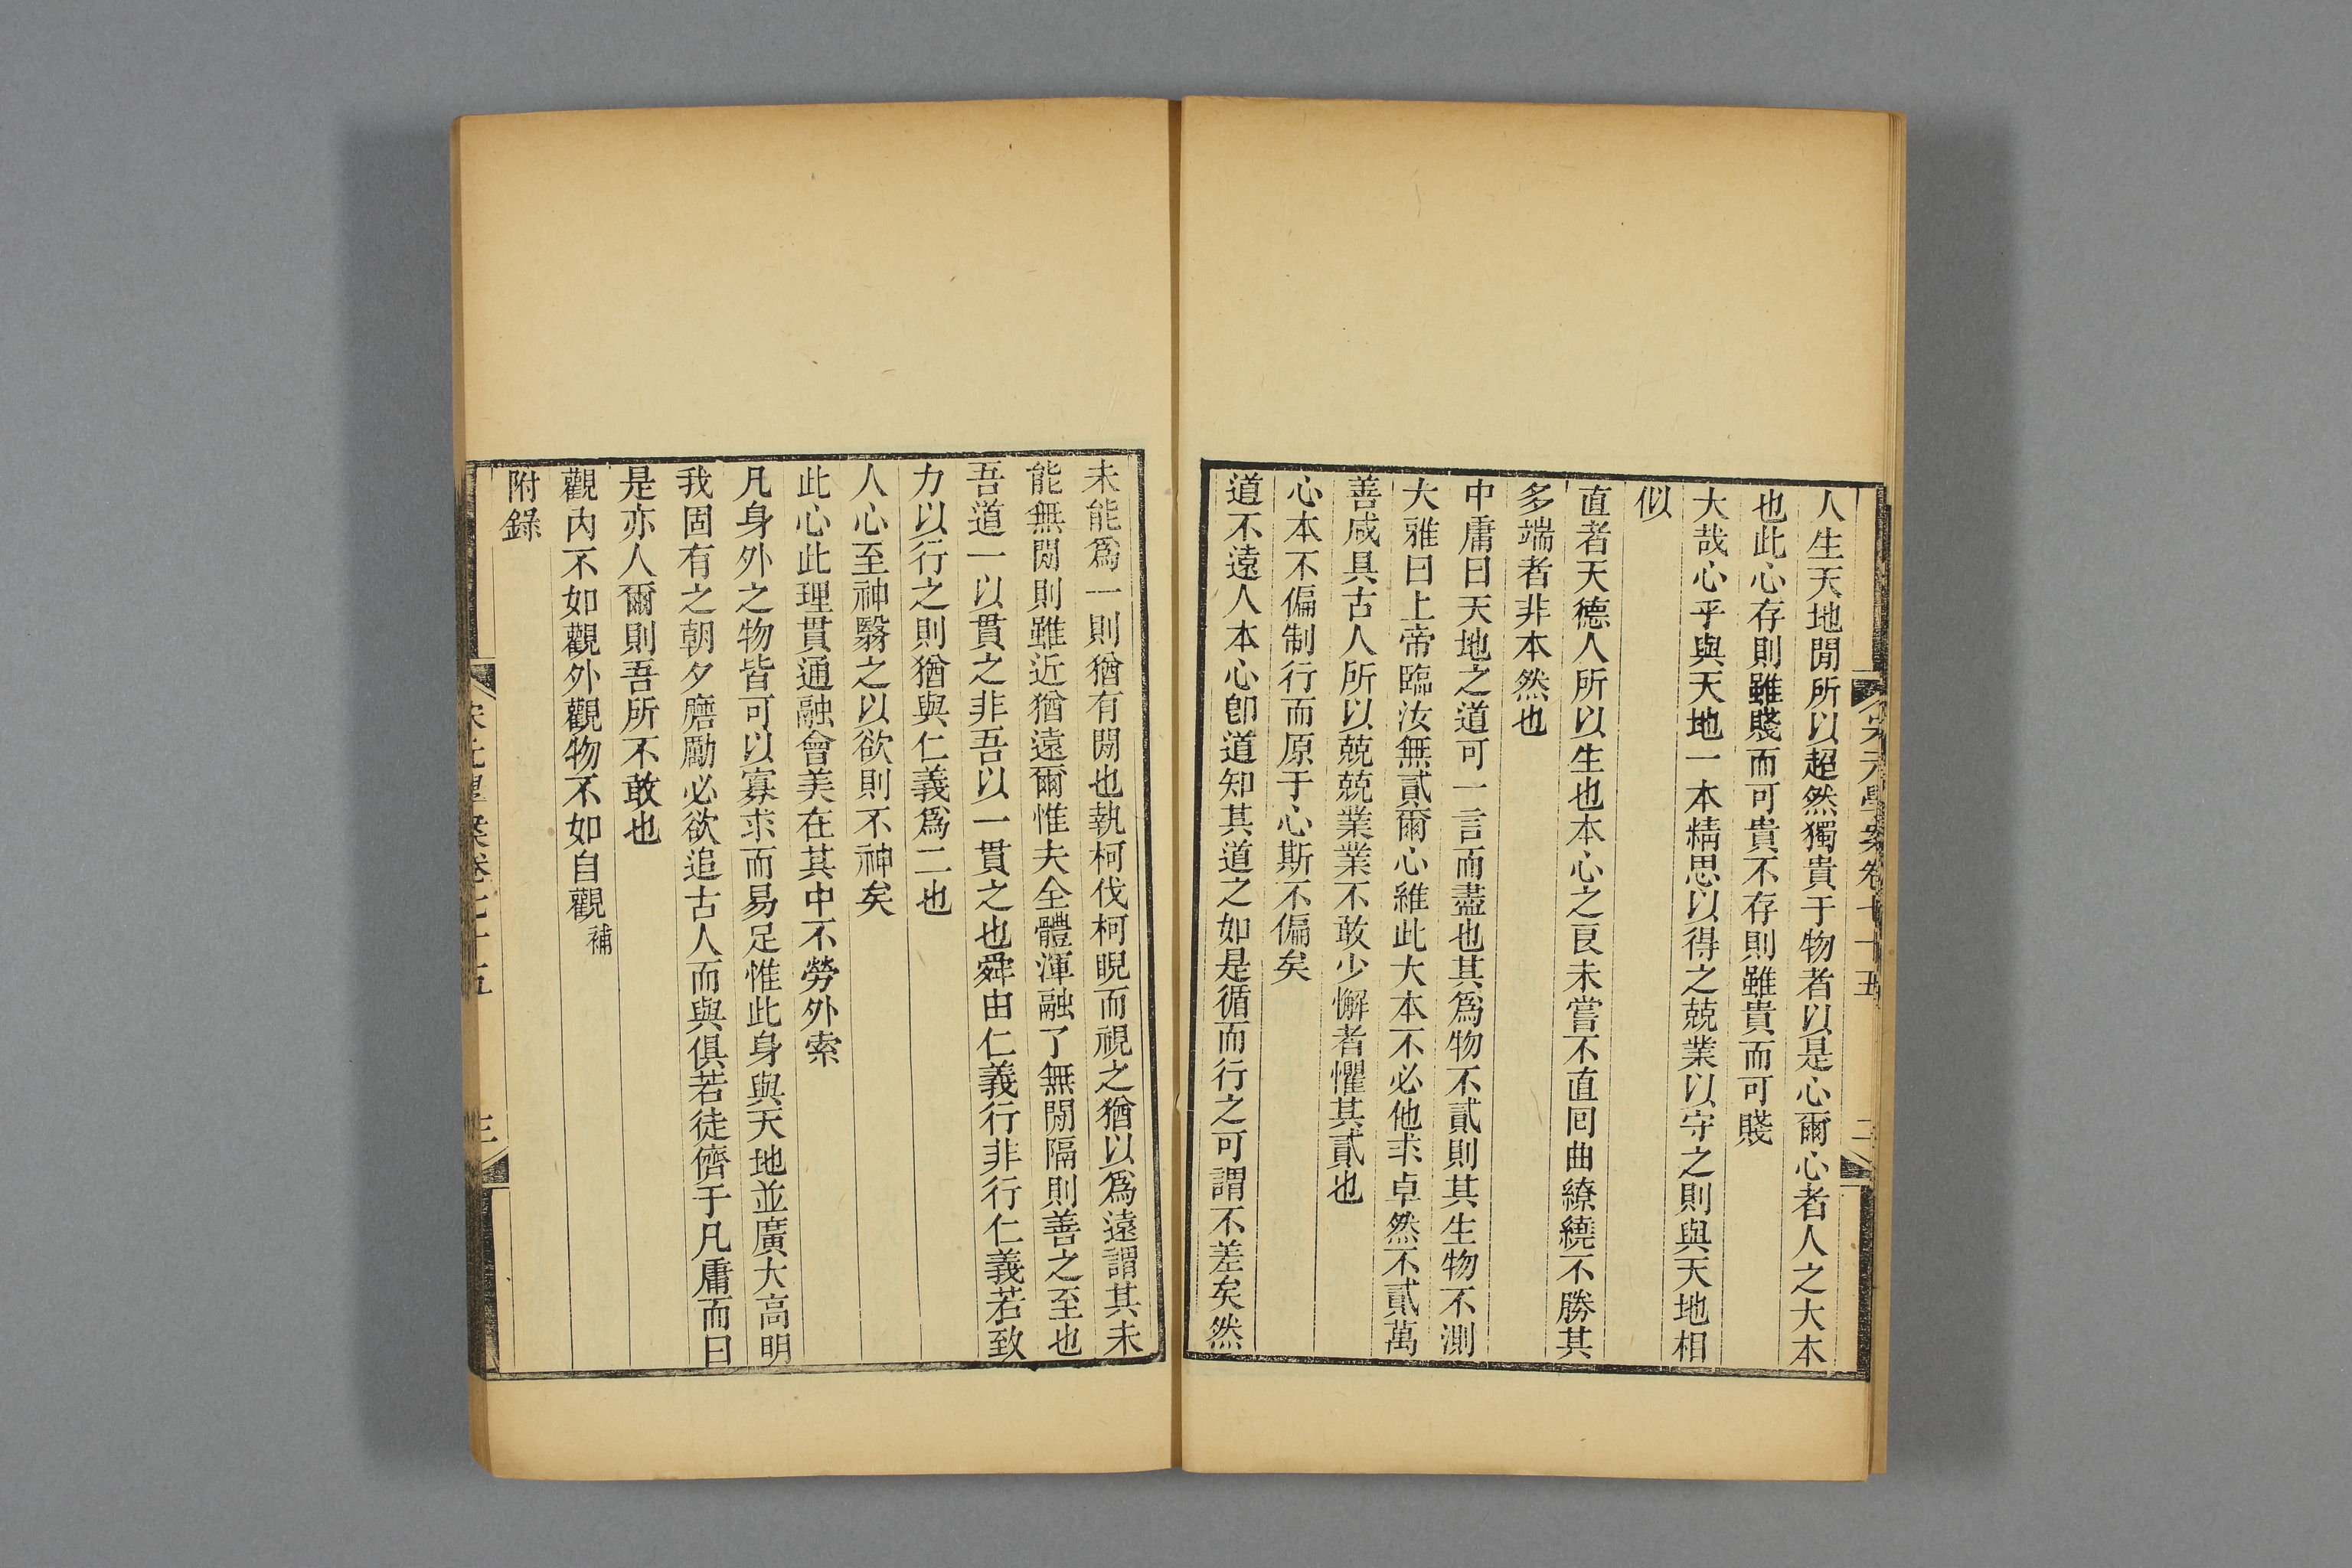 宋元學案卷七十五
二
人生天地閒所以超然獨貴于物者以是心爾心者人之大本
也此心存則雖賤而可貴不存則雖貴而可賤
大哉心乎與天地一本精思以得之兢業以守之則與天地相
似
直者天德人所以生也本心之良未嘗不直回曲繚繞不勝其
多端者非本然也
中庸曰天地之道可一言而盡也其爲物不貳則其生物不測
大雅曰上帝臨汝無貳爾心維此大本不必他求卓然不貳萬
善咸具古人所以兢兢業業不敢少懈者懼其貳也
心本不偏制行而原于心斯不偏矣
道不遠人本心卽道知其道之如是循而行之可謂不差矣然
未能爲一則猶有閒也執柯伐柯睨而視之猶以爲遠謂其未
能無閒則雖近猶遠爾惟夫全體渾融了無閒隔則善之至也
吾道一以貫之非吾以一貫之也舜由仁義行非行仁義若致
力以行之則猶與仁義爲二也
人心至神翳之以欲則不神矣
此心此理貫通融會美在其中不勞外索
凡身外之物皆可以寡求而易足惟此身與天地並廣大高明
我固有之朝夕磨勵必欲追古人而與俱若徒儕于凡庸而曰
是亦人爾則吾所不敢也
觀內不如觀外觀物不如自觀補
附錄
宋元學案卷七十五
三